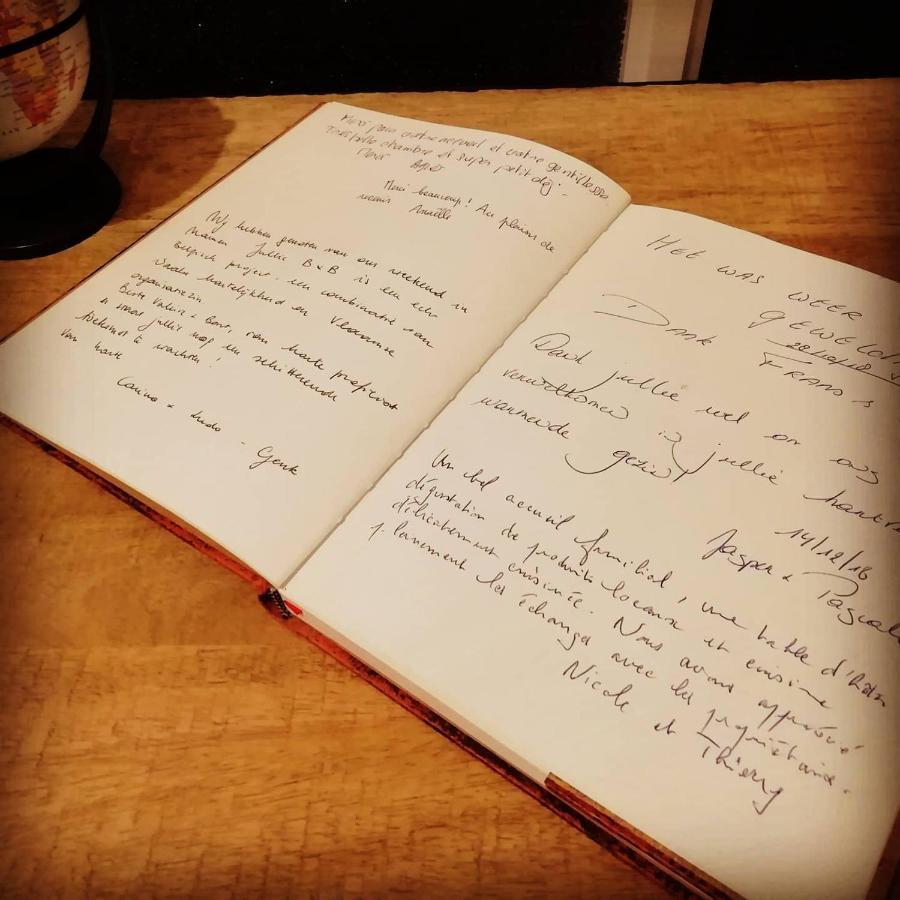 Merci pour votre accueil et votre gentillesse
Très belle chambre et super petit dej.
Merci
Merci beaucoup! Au plaisir de
revenir Anaëlle
Wij hebben genoten van ons weekend in
Namen. Jullie B&B is een echt
Belgisch project. Een combinatie van
Waalse hartelijkheid en Vlaamse
organisatiezin
Beste Valerie & Bart, van harte proficiat
& moge jullie nog een schitterende
toekomst te wachten!
Van harte
Carina & Ludo - Genk
HET WAS WEER
GEWELDIG
28/10/18
DANK FRANS &
Dank jullie wel om ons
verwelkomen in jullie
warmende gezin
14/12/18
Jasper & Pascale
Un bel accueil familial, une table d'hôtes
dégustation de produits locaux et cuisine
délicatement cuisinée. Nous avons apprécié
pleinement les échanges avec les propriétaires.
Nicole et Thierry